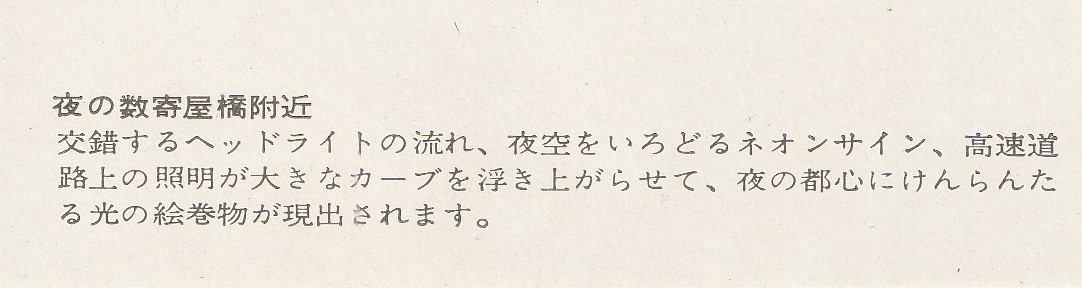 夜の数寄屋橋附近
交錯するヘッドライトの流れ、夜空をいろどるネオンサイン、高速道
路上の照明が大きなカーブを浮き上がらせて、夜の都心にけんらんた
る光の絵巻物が現出されます。